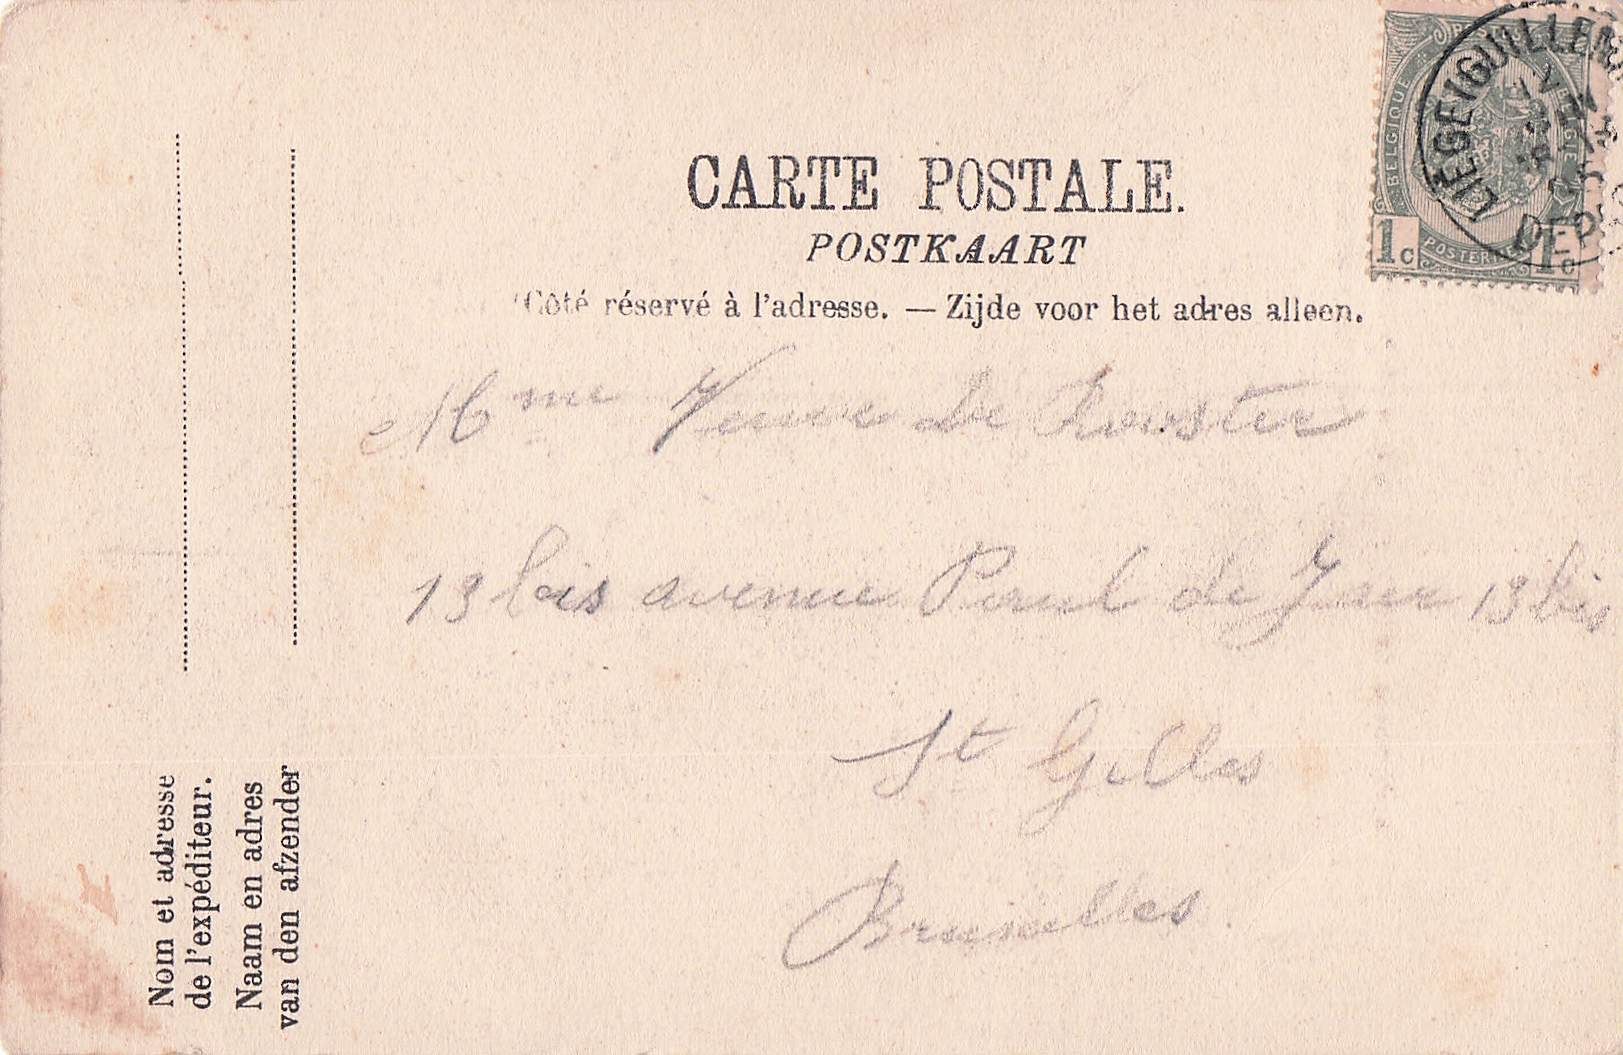 CARTE POSTALE.
POSTKAART
Côté réservé à l'adresse. — Zijde voor het adres alleen.
Mme Veuve De
19 bis avenue Paul de Jaer 19 bis
St Gilles
Bruxelles
Nom et adresse
de l'expéditeur.
Naam en adres
van den afzender
BELGIQUE
1c
POSTERIJEN
1c
LIÈGE (GUILLEMINS)